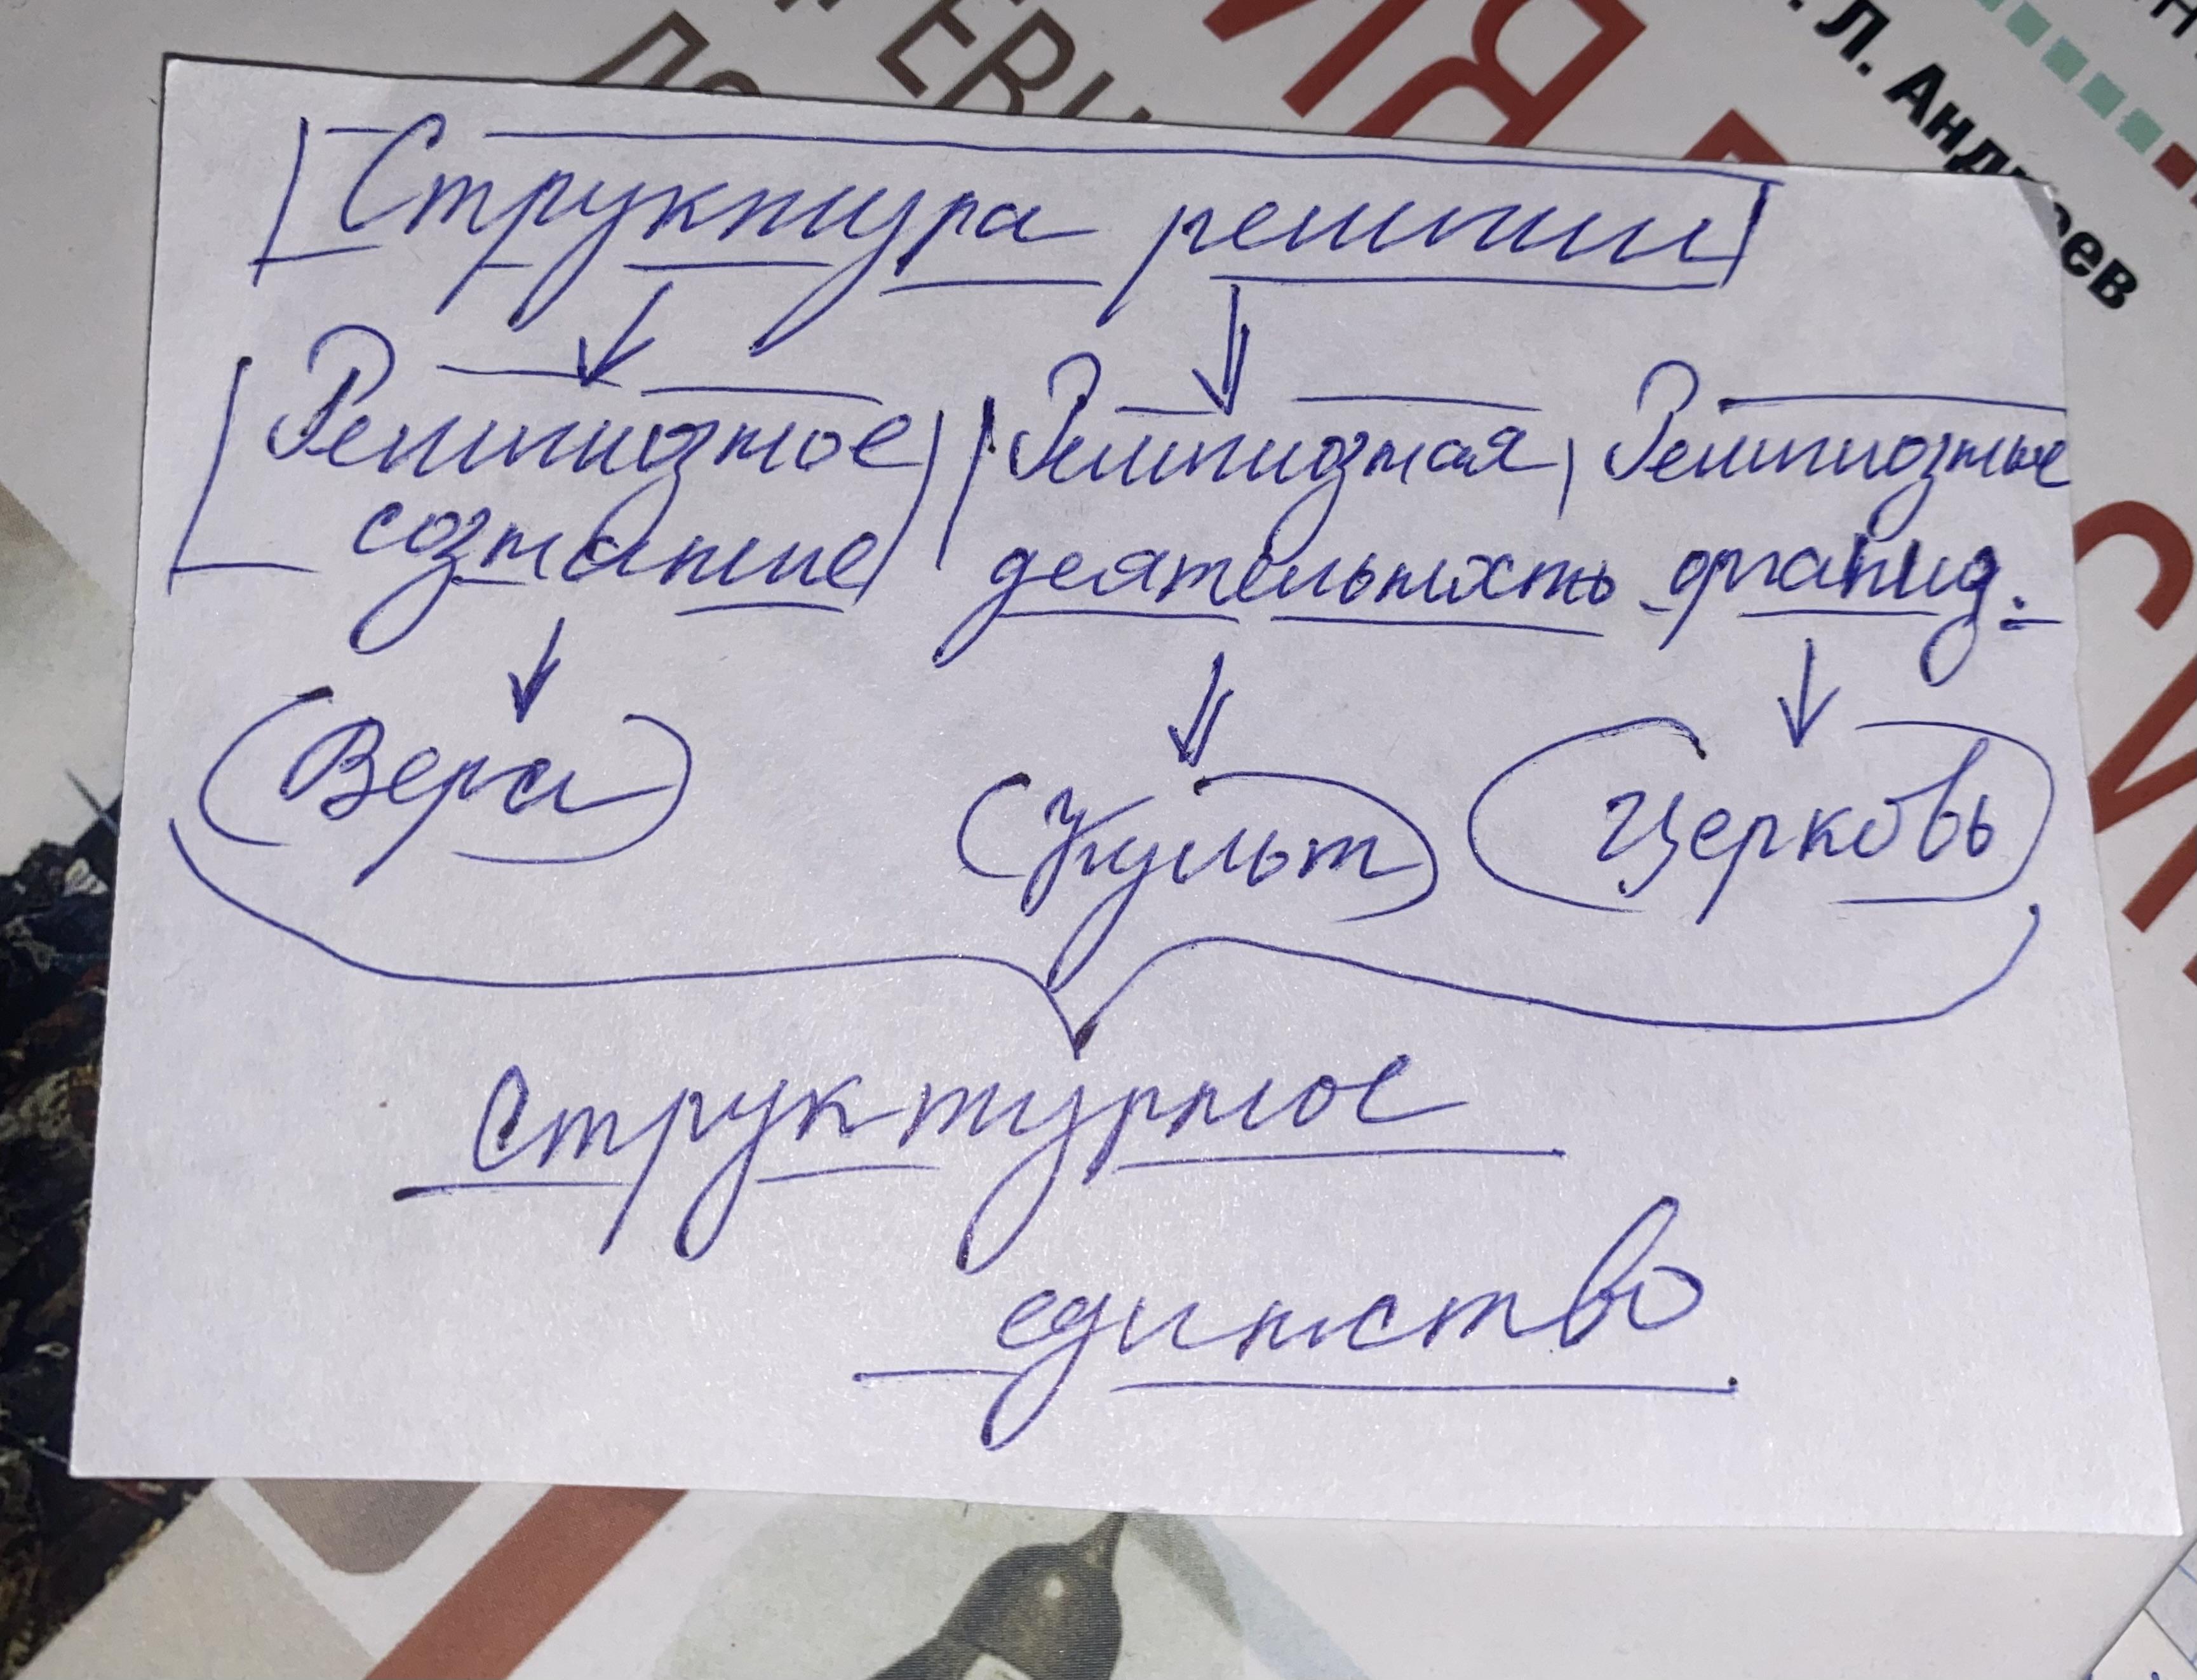 Л. Андреев
Структура религии
Религиозное Религиозная Религиозные
сознание деятельность организ.
Вера Культ Церковь
Структурное
единство